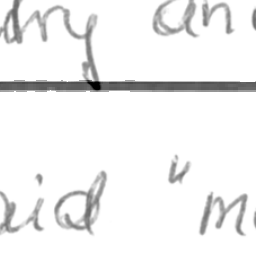 dry an
aid "m